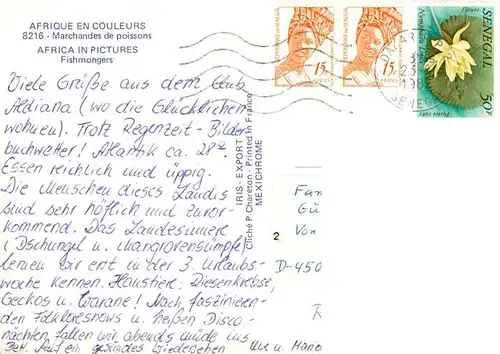 AFRIQUE EN COULEURS
8216 - Marchandes de poissons
AFRICA IN PICTURES
Fishmongers
Viele Grüße aus dem Club
Aldiana (wo die Glücklichen
wohnen). Trotz Regenzeit - Bilder
buchwetter! Atlantik ca. 28°.
Essen reichlich und üppig.
Die Menschen dieses Landes
sind sehr höflich und zuvor-
kommend. Das Landesinnere
(Dschungel u. Mangrovensümpfe)
lernen wir erst in der 3. Urlaubs-
woche kennen. Haustiere: Riesenkrebse,
Geckos u. Warane! Nach faszinieren-
den Folkloreshows u. heißen Disco-
nächten fallen wir abends müde ins
Bett. Auf ein gesundes Wiedersehen
Uwe u. Mano
IRIS-EXPORT
Cliché P. Chareton - Printed in France
MEXICHROME
2
Fam
Gü
Von
D-450
15
POSTES
15
SENEGAL
Fleurs
Nymphaea Lotus
50F
Postes 1982
SENEGAL